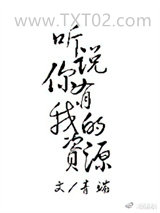 www.TXT02.com
听说
你有
我的
資源
文/青端